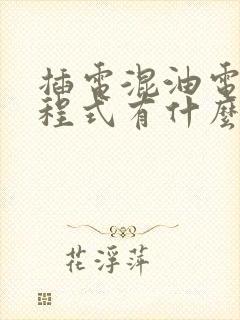 插電混油電
程式有什麼
花浮萍